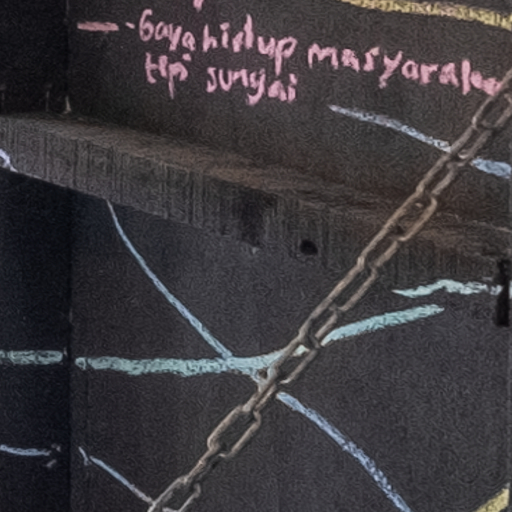 - Gaya hidup masyarakat
tepi sungai